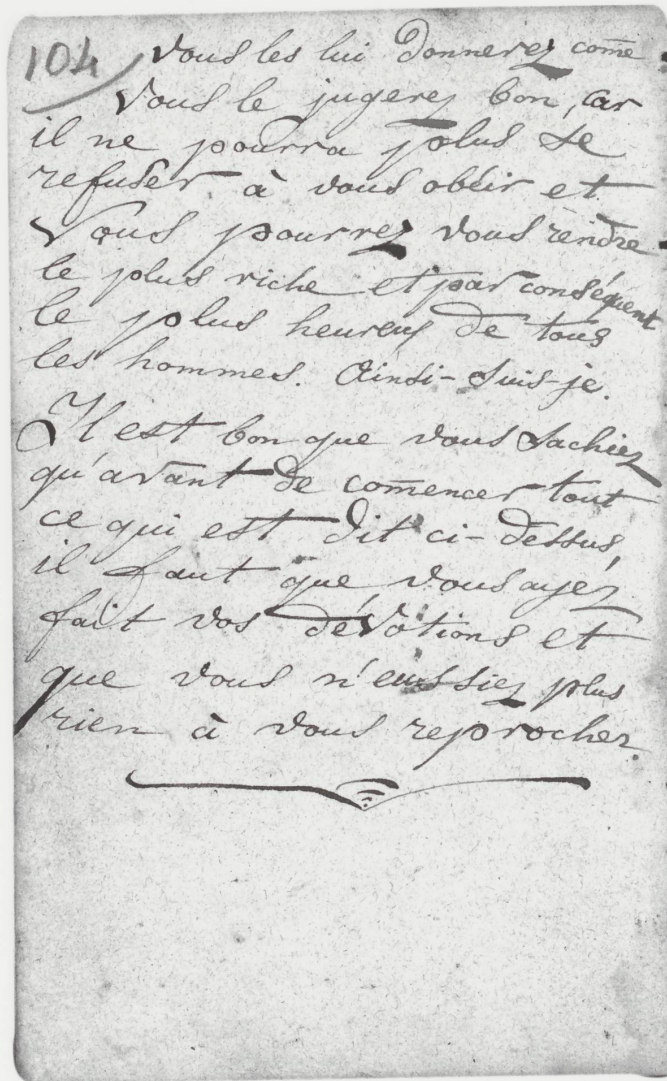 104 Vous les lui donnerez com̄e
Vous le jugerez bon, car
il ne pourra plus se
refuser à vous obéir et
Vous pourrez vous rendre
le plus riche et par conséquent
le plus heureux de tous
les hommes. Ainsi-suis-je.
Il est bon que vous sachiez
qu'avant de com̄encer tout
ce qui est dit ci-dessus,
il faut que vous ayez
fait vos dévotions et
que vous n'eussiez plus
rien à vous reprocher.